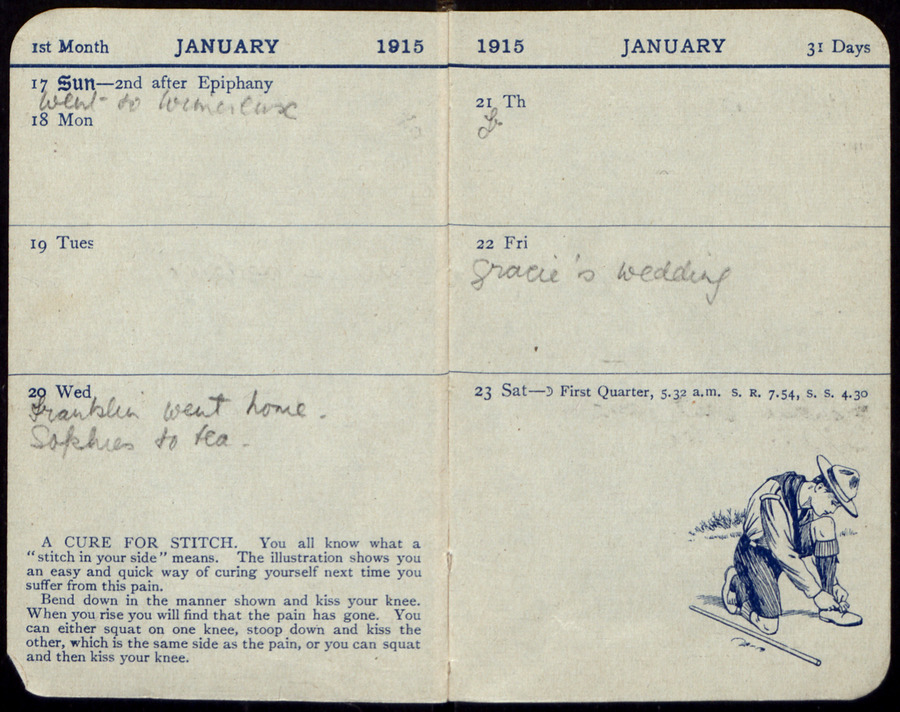 1st Month JANUARY 1915
17 Sun—2nd after Epiphany
Went to
18 Mon
19 Tues
20 Wed
Franklin went home.
Sophies to tea.
A CURE FOR STITCH. You all know what a
"stitch in your side" means. The illustration shows you
an easy and quick way of curing yourself next time you
suffer from this pain.
Bend down in the manner shown and kiss your knee.
When you rise you will find that the pain has gone. You
can either squat on one knee, stoop down and kiss the
other, which is the same side as the pain, or you can squat
and then kiss your knee.
1915 JANUARY 31 Days
21 Th
22 Fri
Gracie's wedding
23 Sat—☽ First Quarter, 5.32 a.m. S. R. 7.54, S. S. 4.30